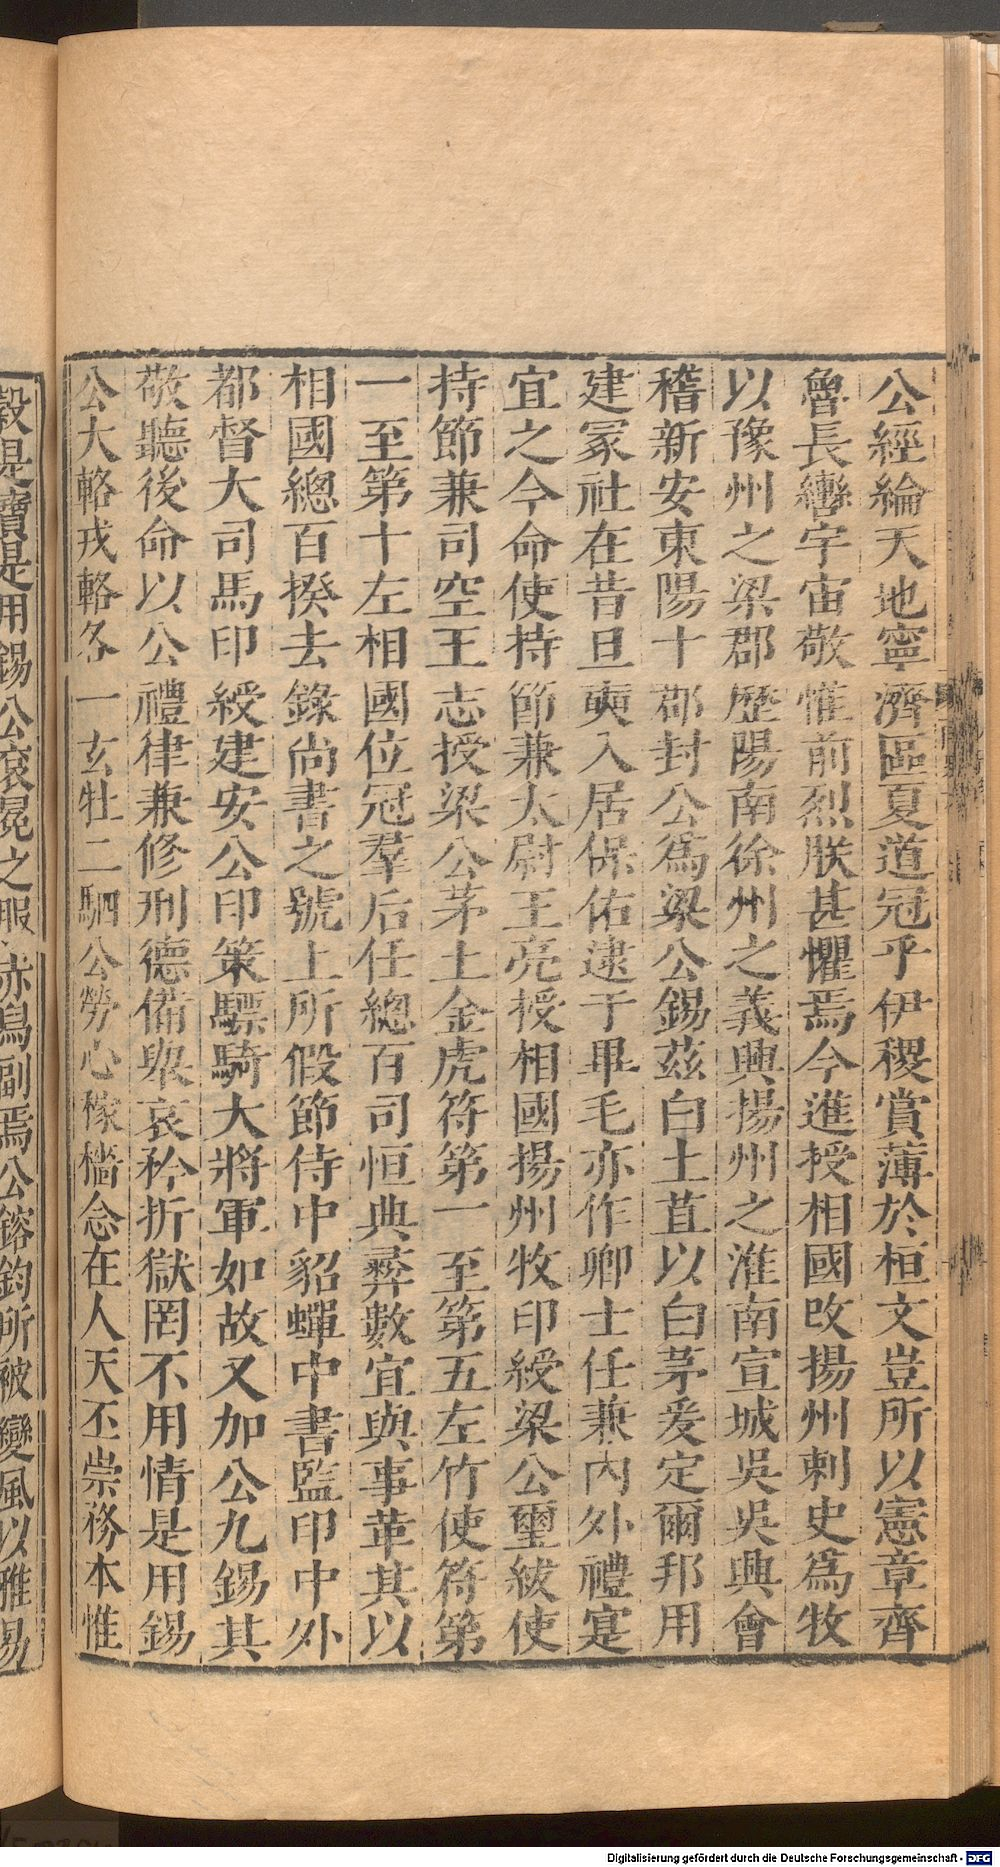 公經綸天地寧濟區夏道冠乎伊稷賞薄於桓文豈所以憲章齊
魯長轡宇宙敬惟前烈朕甚懼焉今進授相國改揚州刺史爲牧
以豫州之梁郡歷陽南徐州之義興揚州之淮南宣城吳吳興會
稽新安東陽十郡封公爲梁公錫茲白土苴以白茅爰定爾邦用
建冢社在昔旦奭入居保佑逮于畢毛亦作卿士任兼內外禮寔
宜之今命使持節兼太尉王亮授相國揚州牧印綬梁公璽紱使
持節兼司空王志授梁公茅土金虎符第一至第五左竹使符第
一至第十左相國位冠羣后任總百司恒典彝數宜與事革其以
相國總百揆去錄尚書之號上所假節侍中貂蟬中書監印中外
都督大司馬印綬建安公印策驃騎大將軍如故又加公九錫其
敬聽後命以公禮律兼修刑德備舉哀矜折獄罔不用情是用錫
公大輅戎輅各一玄牡二駟公勞心稼穡念在人天丕崇務本惟
穀是寶是用錫公袞冕之服赤舄副焉公鎔鈞所被變風以雅易
Digitalisierung gefördert durch die Deutsche Forschungsgemeinschaft - DFG